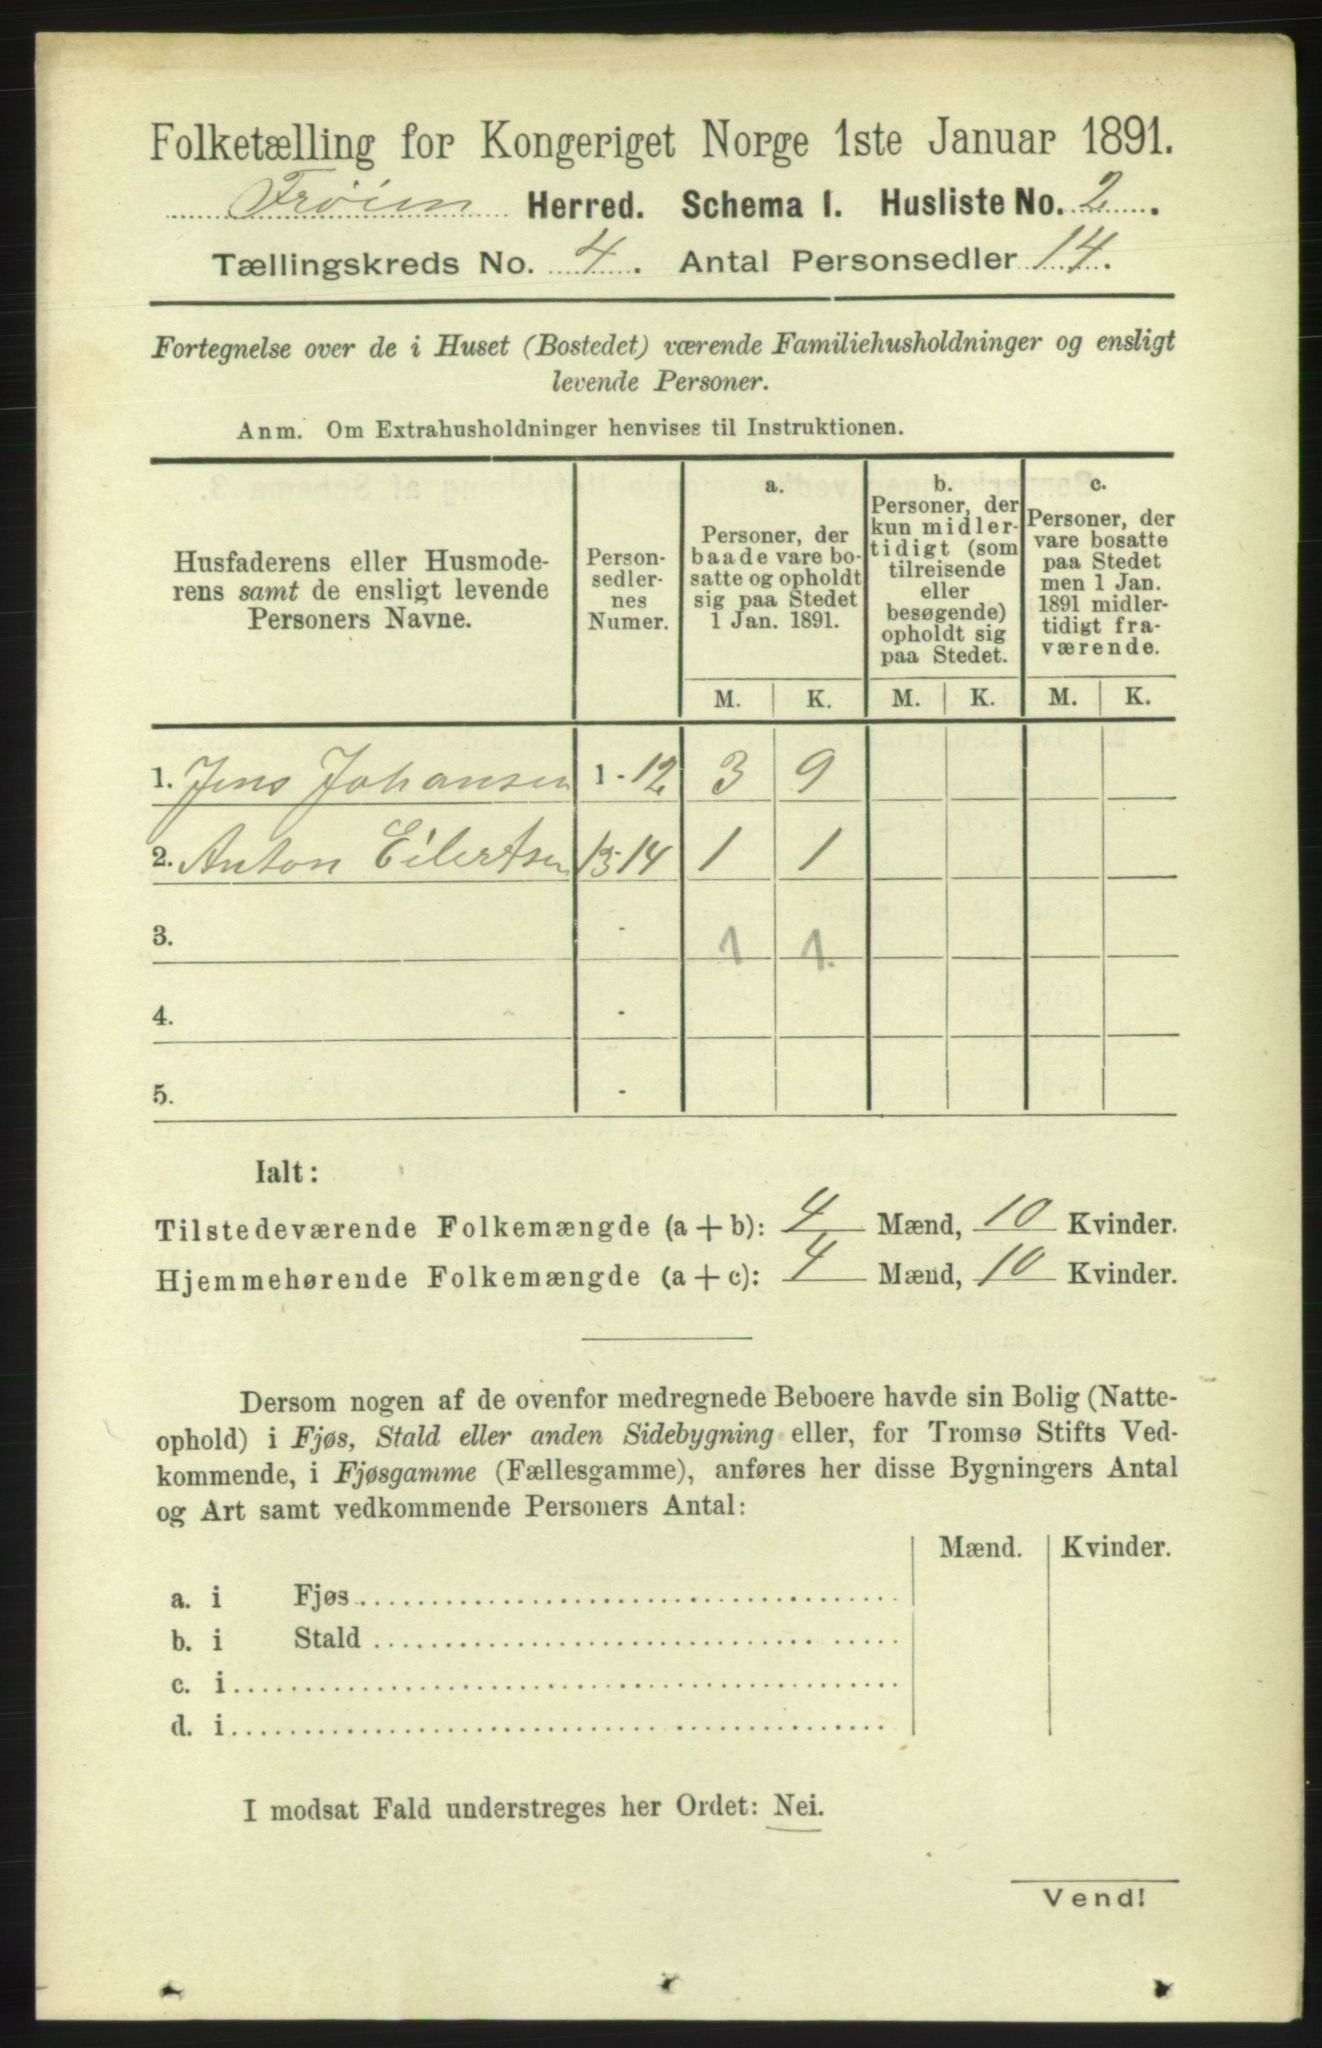 Folketælling for Kongeriget Norge 1ste Januar 1891.
Frøien Herred. Schema I. Husliste No. 2.
Tællingskreds No. 4. Antal Personsedler 14.
Fortegnelse over de i Huset (Bostedet) værende Familiehusholdninger og ensligt
levende Personer.
Anm. Om Extrahusholdninger henvises til Instruktionen.
Husfaderens eller Husmode-
rens samt de ensligt levende
Personers Navne.
Person-
sedler-
nes
Numer.
a.
Personer, der
baade vare bo-
satte og opholdt
sig paa Stedet
1 Jan. 1891.
b.
Personer, der
kun midler-
tidigt (som
tilreisende
eller
besøgende)
opholdt sig
paa Stedet.
c.
Personer, der
vare bosatte
paa Stedet
men 1 Jan.
1891 midler-
tidigt fra-
værende.
M. K. M. K. M. K.
1. Jens Johansen 1 - 12 3 9
2. Anton Eilertsen 13-14 1 1
3. - 1 1.
4. -
5. -
Ialt:
Tilstedeværende Folkemængde (a + b): 4 Mænd, 10 Kvinder.
Hjemmehørende Folkemængde (a + c): 4 Mænd, 10 Kvinder.
Dersom nogen af de ovenfor medregnede Beboere havde sin Bolig (Natte-
ophold) i Fjøs, Stald eller anden Sidebygning eller, for Tromsø Stifts Ved-
kommende, i Fjøsgamme (Fællesgamme), anføres her disse Bygningers Antal
og Art samt vedkommende Personers Antal:
Mænd. Kvinder.
a. i Fjøs
b. i Stald
c. i
d. i
I modsat Fald understreges her Ordet: Nei.
Vend!